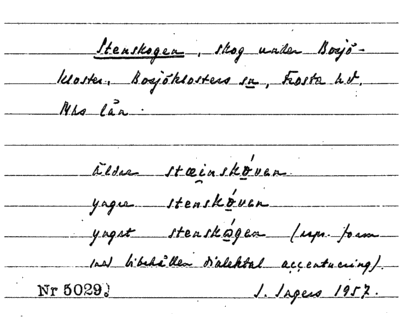 Stenskogen, skog under Bosjö-
kloster, Bosjöklosters sn, Frosta hd,
Mhs län.
äldre stæinskóven
yngre stenskóven
yngst stenskågen (rspr. form
med bibehållen dialektal accentuering).
Nr 5029. I. Ingers 1957.